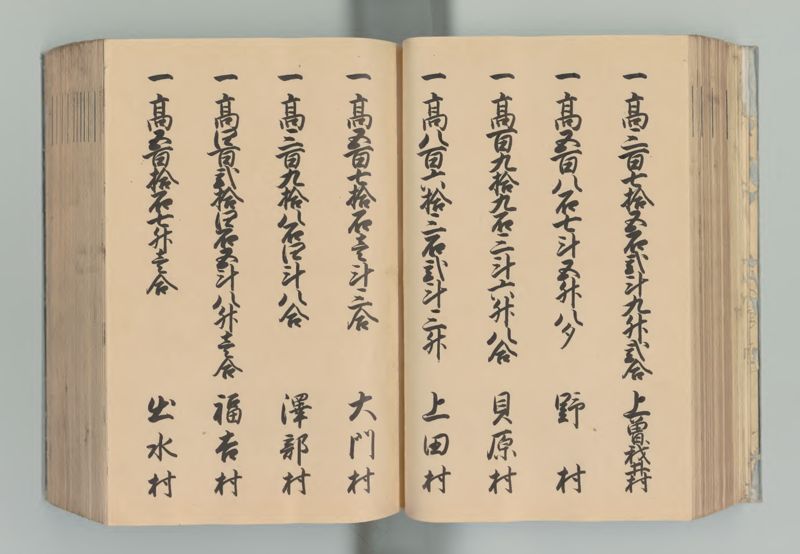 一 高三百七拾五石弐斗九升弐合 上曽我井村
一 高五百八石七斗五升八夕 野村
一 高百九拾九石三斗六升八合 貝原村
一 高八百六拾三石弐斗三升 上田村
一 高五百七拾石壱斗三合 大門村
一 高三百九拾八石四斗八合 澤部村
一 高四百弐拾四石五斗八升壱合 福吉村
一 高五百拾石七升壱合 出水村